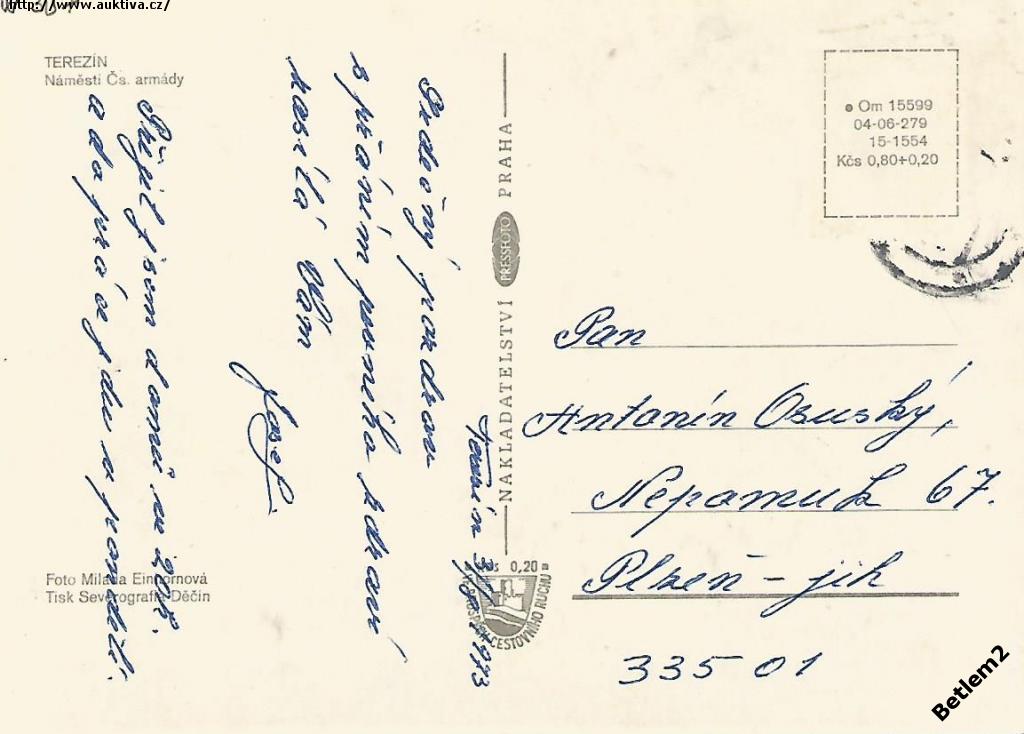 http://www.auktiva.cz/
TEREZÍN
Náměstí Čs. armády
Srdečný pozdrav
s přáním pevného zdraví
zasílá Vám
Josef
Přijel jsem domů ve
a do práce jdu v pondělí.
Terezín 1973
NAKLADATELSTVÍ PRESSFOTO PRAHA
Om 15599
04-06-279
15-1554
Kčs 0,80+0,20
Pan
Antonín Osuský,
Nepomuk 67.
Plzeň - jih
335 01
Foto Milada Einhornová
Tisk Severografia Děčín
0,20
CESTOVNÍHO RUCHU
Betlem2